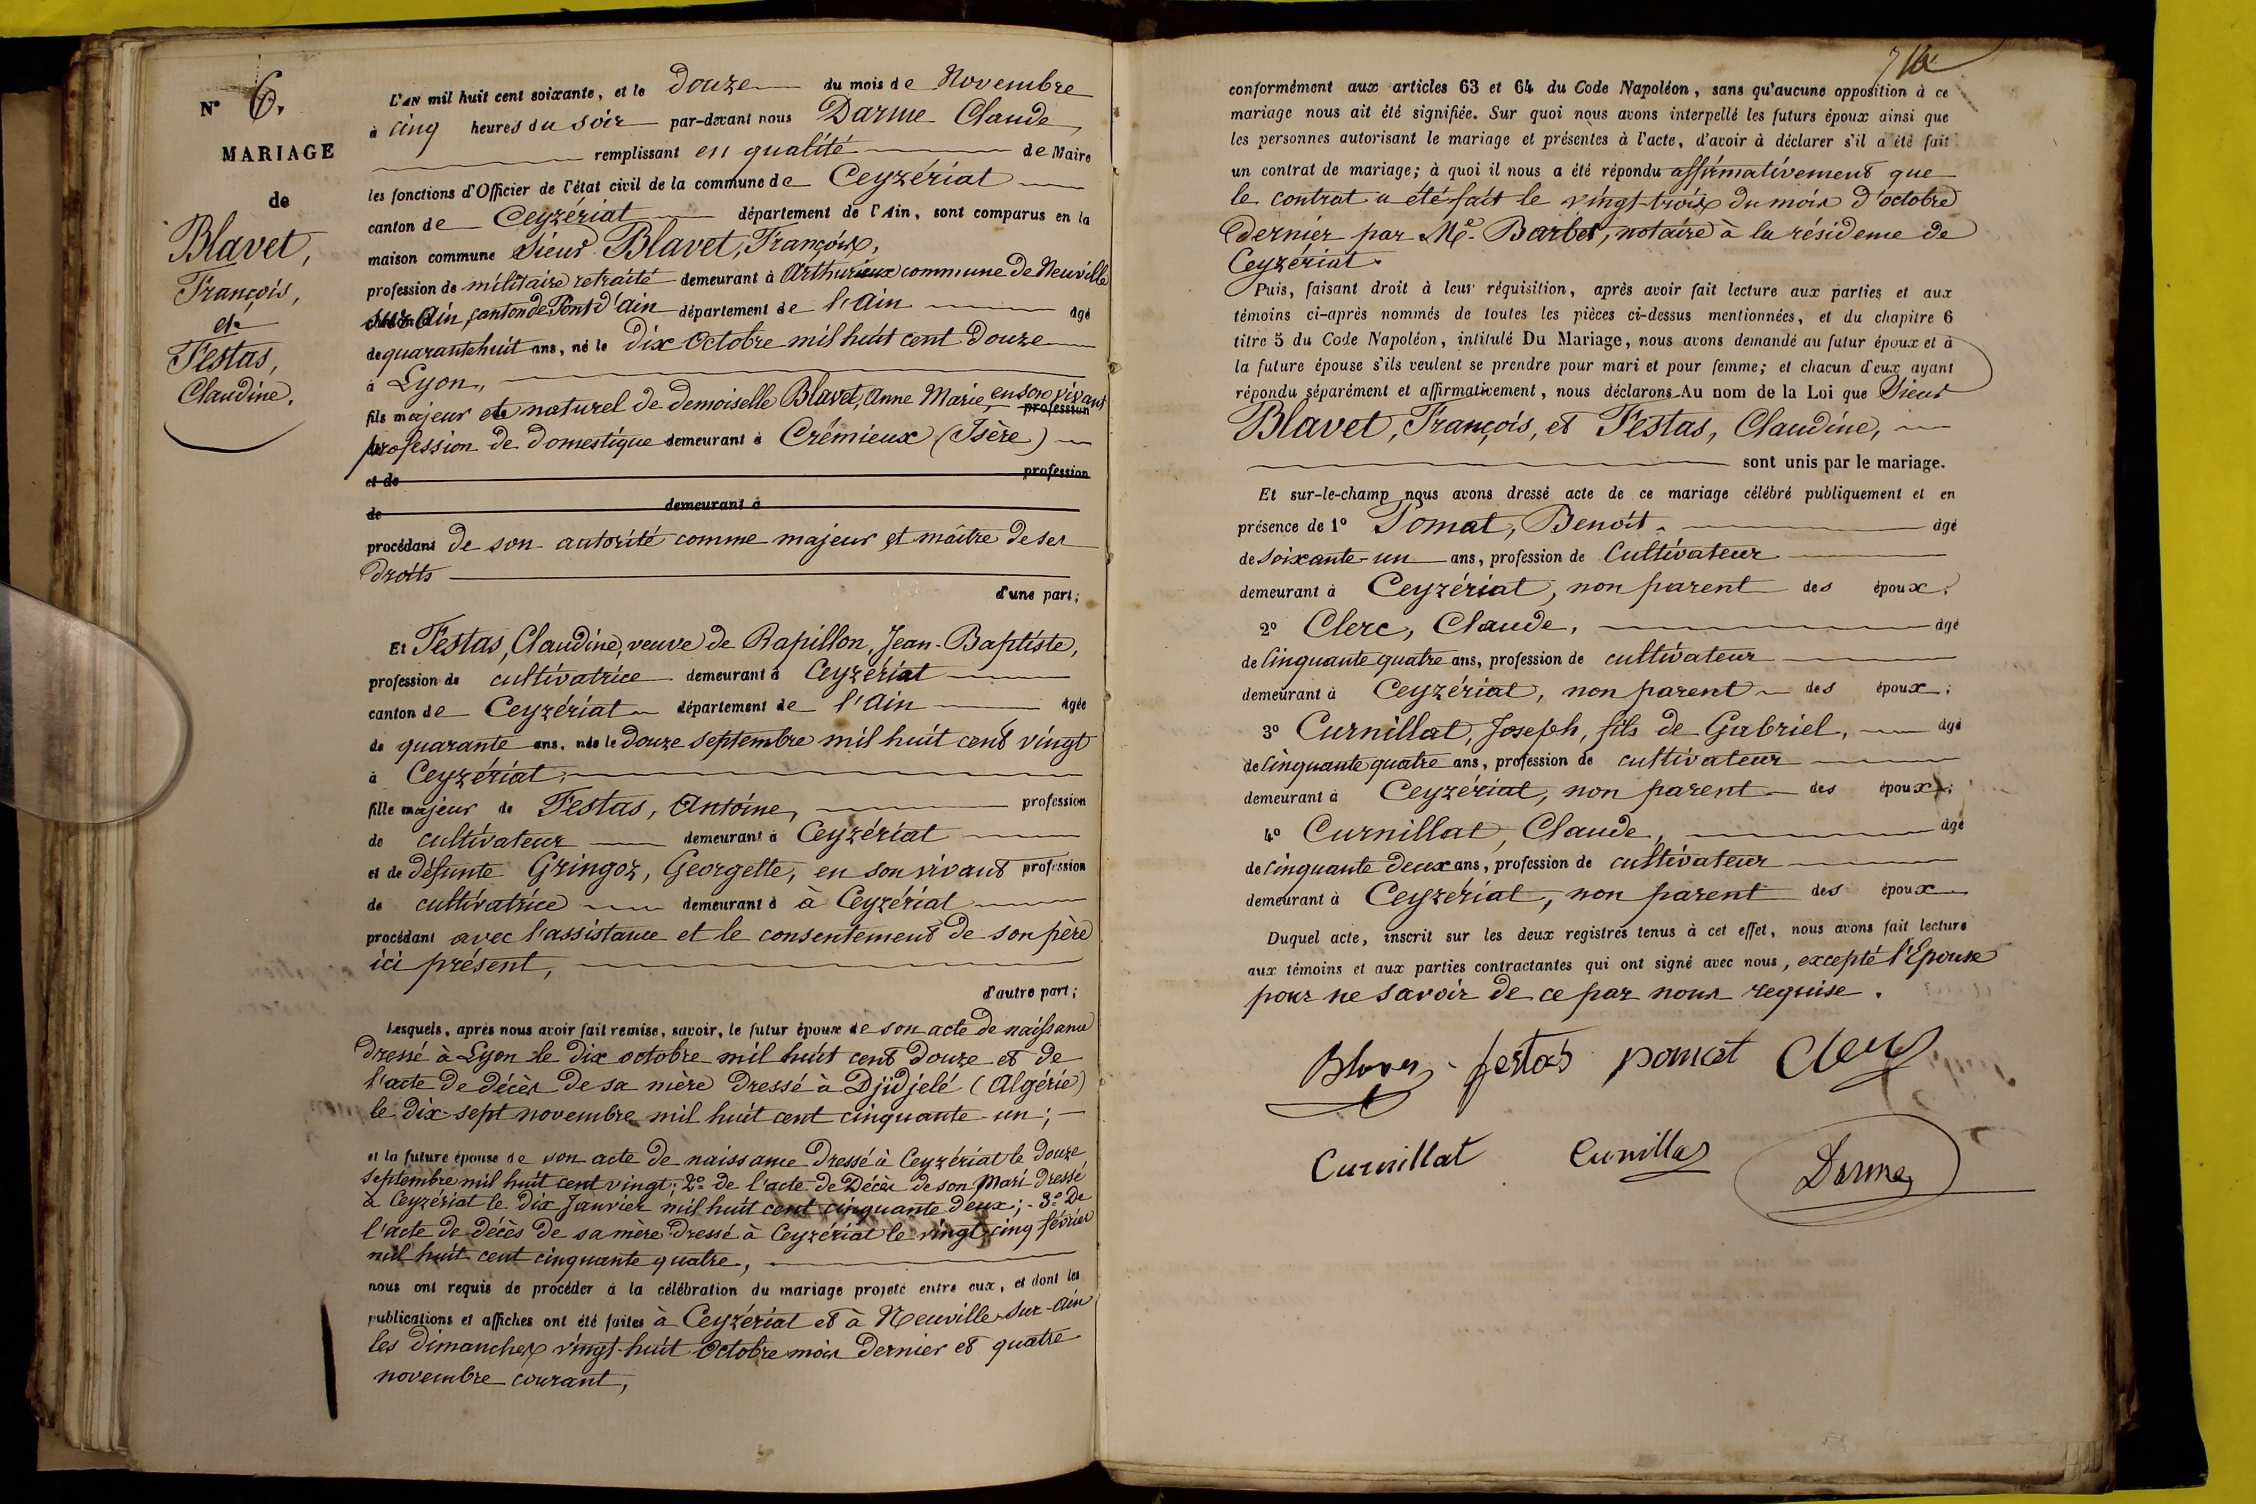 N° 6.
MARIAGE
de
Blavet,
François,
et
Festas,
Claudine.
L'AN mil huit cent soixante, et le Douze du mois de Novembre
à cinq heures du soir par-devant nous Darme Claude,
remplissant en qualité de Maire
les fonctions d'Officier de l'état civil de la commune de Ceyzériat
canton de Ceyzériat département de l'Ain, sont comparus en la
maison commune Sieur Blavet, François,
profession de militaire retraité demeurant à Arthurieux commune de Neuville
sur Ain, canton de Pont d'ain département de l'Ain âgé
de quarante huit ans, né le Dix Octobre mil huit cent Douze
à Lyon,
fils majeur et naturel de demoiselle Blavet, Anne Marie, en son vivant profession
profession de Domestique demeurant à Crémieux (Isère)
et de profession
de demeurant à
procédant de son autorité comme majeur et maître de ses
Droits
d'une part;
Et Festas, Claudine, veuve de Rapillon, Jean-Baptiste,
profession de cultivatrice demeurant à Ceyzériat
canton de Ceyzériat département de l'Ain âgée
de quarante ans, née le Douze septembre mil huit cent vingt
à Ceyzériat,
fille majeur de Festas, Antoine, profession
de cultivateur demeurant à Ceyzériat
et de défunte Gringoz, Georgette, en son vivant profession
de cultivatrice demeurant à à Ceyzériat
procédant avec l'assistance et le consentement de son père
ici présent,
d'autre part;
Lesquels, après nous avoir fait remise, savoir, le futur époux de son acte de naissance
Dressé à Lyon le Dix octobre mil huit cent Douze et de
l'acte de décès de sa mère Dressé à Djidjelé (Algérie)
le Dix-sept novembre mil huit cent cinquante-un;
et la future épouse de son acte de naissance Dressé à Ceyzériat le Douze
septembre mil huit cent vingt; 2° de l'acte de Décès de son Mari Dressé
à Ceyzériat le Dix Janvier mil huit cent cinquante Deux; - 3° De
l'acte de décès de sa mère Dressé à Ceyzériat le vingt-cinq février
mil huit cent cinquante quatre,
nous ont requis de procéder à la célébration du mariage projeté entre eux, et dont les
publications et affiches ont été faites à Ceyzériat et à Neuville-sur-Ain
les Dimanches vingt-huit Octobre mois Dernier et quatre
novembre courant,
conformément aux articles 63 et 64 du Code Napoléon, sans qu'aucune opposition à ce
mariage nous ait été signifiée. Sur quoi nous avons interpellé les futurs époux ainsi que
les personnes autorisant le mariage et présentes à l'acte, d'avoir à déclarer s'il a été fait
un contrat de mariage; à quoi il nous a été répondu affirmativement que
le contrat a été fait le vingt-trois du mois d'octobre
Dernier par Me. Barbet, notaire à la résidence de
Ceyzériat.
Puis, faisant droit à leur réquisition, après avoir fait lecture aux parties et aux
témoins ci-après nommés de toutes les pièces ci-dessus mentionnées, et du chapitre 6
titre 5 du Code Napoléon, intitulé Du Mariage, nous avons demandé au futur époux et à
la future épouse s'ils veulent se prendre pour mari et pour femme; et chacun d'eux ayant
répondu séparément et affirmativement, nous déclarons Au nom de la Loi que Sieur
Blavet, François, et Festas, Claudine,
sont unis par le mariage.
Et sur-le-champ nous avons dressé acte de ce mariage célébré publiquement et en
présence de 1° Pomat, Benoit. âgé
de soixante-un ans, profession de Cultivateur
demeurant à Ceyzériat, non parent des époux;
2° Clerc, Claude, âgé
de Cinquante quatre ans, profession de cultivateur
demeurant à Ceyzériat, non parent des époux;
3° Curnillat, Joseph, fils de Gabriel, âgé
de Cinquante quatre ans, profession de cultivateur
demeurant à Ceyzériat, non parent des époux;
4° Curnillat, Claude, âgé
de Cinquante Deux ans, profession de cultivateur
demeurant à Ceyzériat, non parent des époux
Duquel acte, inscrit sur les deux registres tenus à cet effet, nous avons fait lecture
aux témoins et aux parties contractantes qui ont signé avec nous, excepté l'Epouse
pour ne savoir de ce par nous requise.
Blavet festas pomat Clerc
Curnillat Curnillat Darme